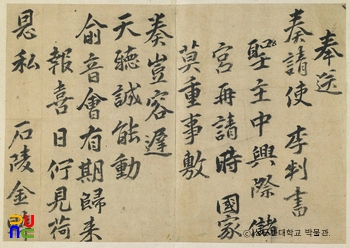 奉送
奏請使 李判書
聖主中興際
宮再請時 國家
莫重事敷
奏豈容遲
天聽誠能動
兪音會有期歸来
報喜日佇見荷
恩私 石陵金
대학교 박물관